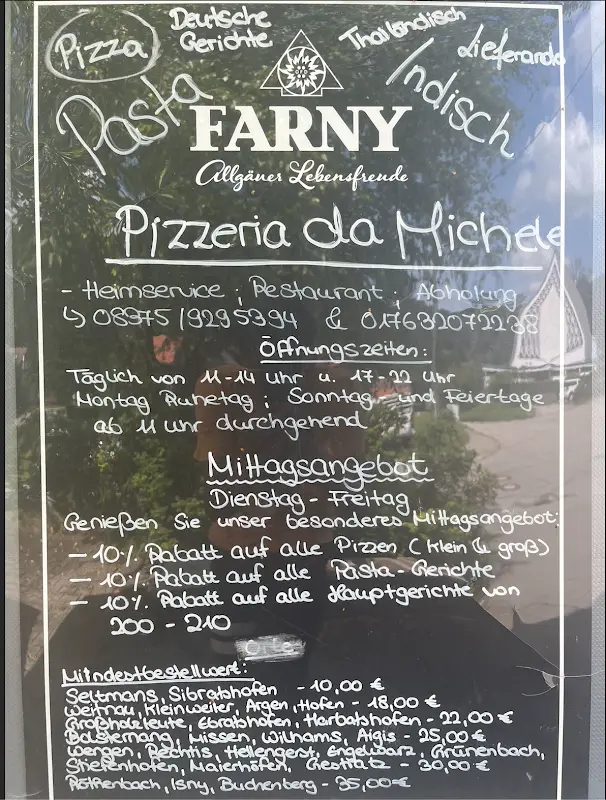 Pizza
Deutsche
Gerichte
Thailändisch
Lieferando
Pasta
Indisch
FARNY
Allgäuer Lebensfreude
Pizzeria da Michele
- Heimservice ; Restaurant ; Abholung
↳ 08975/9295394 & 017632072238
Öffnungszeiten:
Täglich von 11-14 Uhr u. 17-22 Uhr
Montag Ruhetag ; Sonntag und Feiertage
ab 11 Uhr durchgehend
Mittagsangebot
Dienstag - Freitag
Genießen Sie unser besonderes Mittagsangebot:
- 10% Rabatt auf alle Pizzen (klein & groß)
- 10% Rabatt auf alle Pasta-Gerichte
- 10% Rabatt auf alle Hauptgerichte von
200 - 210
Orte
Mindestbestellwert:
Seltmans, Sibratshofen - 10,00 €
Weitnau, Kleinweiler, Argen, Hofen - 18,00 €
Großholzleute, Ebratshofen, Harbatshofen - 22,00 €
Bolsternang, Missen, Wilhams, Aigis - 25,00 €
Wengen, Rechtis, Hellengerst, Engelwarz, Grünenbach,
Stiefenhofen, Maierhöfen, Gestratz - 30,00 €
Röthenbach, Isny, Buchenberg - 35,00€